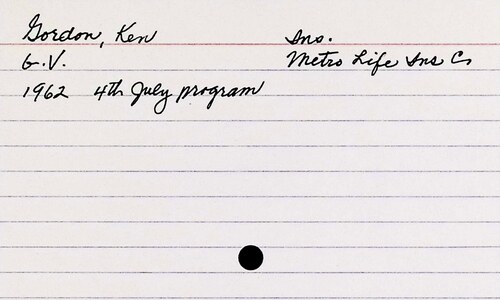 Gordon, Ken Ins.
G.V. Metro Life Ins Co
1962 4th July program